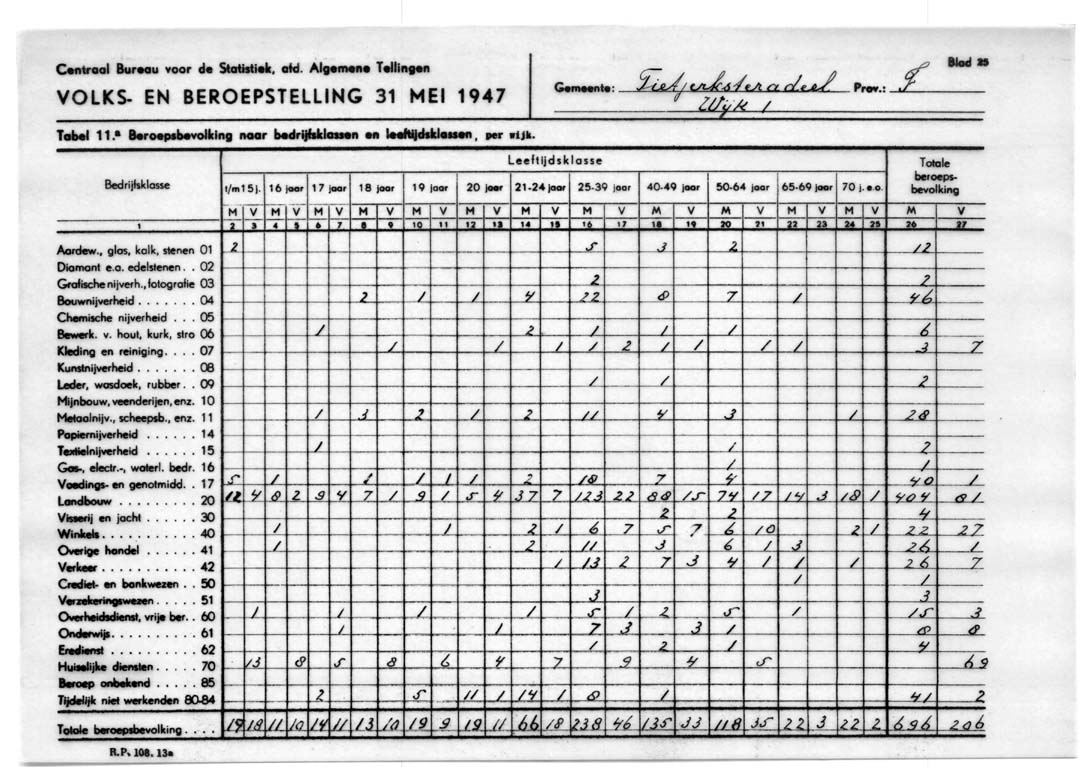 Centraal Bureau voor de Statistiek, afd. Algemene Tellingen
VOLKS- EN BEROEPSTELLING 31 MEI 1947
Gemeente: Tietjerksteradeel Prov.: F Blad 25
Wijk 1
Tabel 11.a Beroepsbevolking naar bedrijfsklassen en leeftijdsklassen, per wijk.
Bedrijfsklasse Leeftijdsklasse Totale beroeps-bevolking
t/m 15 j. 16 jaar 17 jaar 18 jaar 19 jaar 20 jaar 21-24 jaar 25-39 jaar 40-49 jaar 50-64 jaar 65-69 jaar 70 j. e.o.
M V M V M V M V M V M V M V M V M V M V M V M V M V
1 2 3 4 5 6 7 8 9 10 11 12 13 14 15 16 17 18 19 20 21 22 23 24 25 26 27
Aardew., glas, kalk, stenen 01 2 5 3 2 12
Diamant e.a. edelstenen . . 02
Grafische nijverh., fotografie 03 2 2
Bouwnijverheid . . . . . . . 04 2 1 1 4 22 8 7 1 46
Chemische nijverheid . . . 05
Bewerk. v. hout, kurk, stro 06 1 2 1 1 1 6
Kleding en reiniging. . . . 07 1 1 1 1 2 1 1 1 1 3 7
Kunstnijverheid . . . . . . 08
Leder, wasdoek, rubber. . 09 1 1 2
Mijnbouw, veenderijen, enz. 10
Metaalnijv., scheepsb., enz. 11 1 3 2 1 2 11 4 3 1 28
Papiernijverheid . . . . . . 14
Textielnijverheid . . . . . . 15 1 1 2
Gas-, electr.-, waterl. bedr. 16 1 1
Voedings- en genotmidd. . 17 5 1 1 1 1 1 2 18 7 4 40 1
Landbouw . . . . . . . . . 20 12 4 8 2 9 4 7 1 9 1 5 4 37 7 123 22 88 15 74 17 14 3 18 1 404 81
Visserij en jacht . . . . . . 30 2 2 4
Winkels. . . . . . . . . . . 40 1 1 2 1 6 7 5 7 6 10 2 1 22 27
Overige handel . . . . . . 41 1 2 11 3 6 1 3 26 1
Verkeer . . . . . . . . . . 42 1 13 2 7 3 4 1 1 1 26 7
Crediet- en bankwezen . . 50 1 1
Verzekeringswezen. . . . . 51 3 3
Overheidsdienst, vrije ber. . 60 1 1 1 1 5 1 2 5 1 15 3
Onderwijs. . . . . . . . . . 61 1 1 7 3 3 1 8 8
Eredienst . . . . . . . . . 62 1 2 1 4
Huiselijke diensten. . . . . 70 13 8 5 8 6 4 7 9 4 5 69
Beroep onbekend . . . . . 85
Tijdelijk niet werkenden 80-84 2 5 11 1 14 1 8 1 41 2
Totale beroepsbevolking . . . . 19 18 11 10 14 11 13 10 19 9 19 11 66 18 238 46 135 33 118 35 22 3 22 2 696 206
R.P. 108. 13a